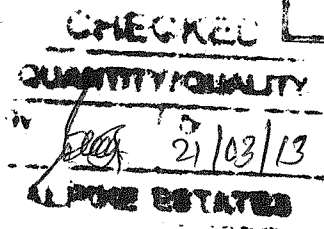 CHECKED
QUANTITY/QUALITY
21/03/13
ALPINE ESTATES